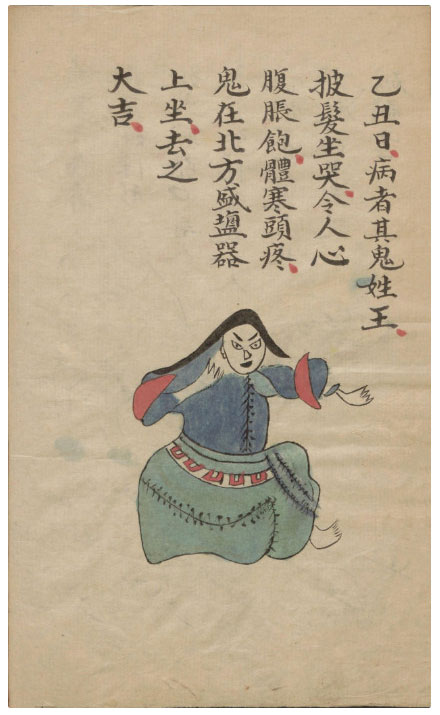 乙丑日病者其鬼姓王
披髮坐哭令人心
腹脹飽體寒頭疼
鬼在北方盛盬器
上坐去之
大吉